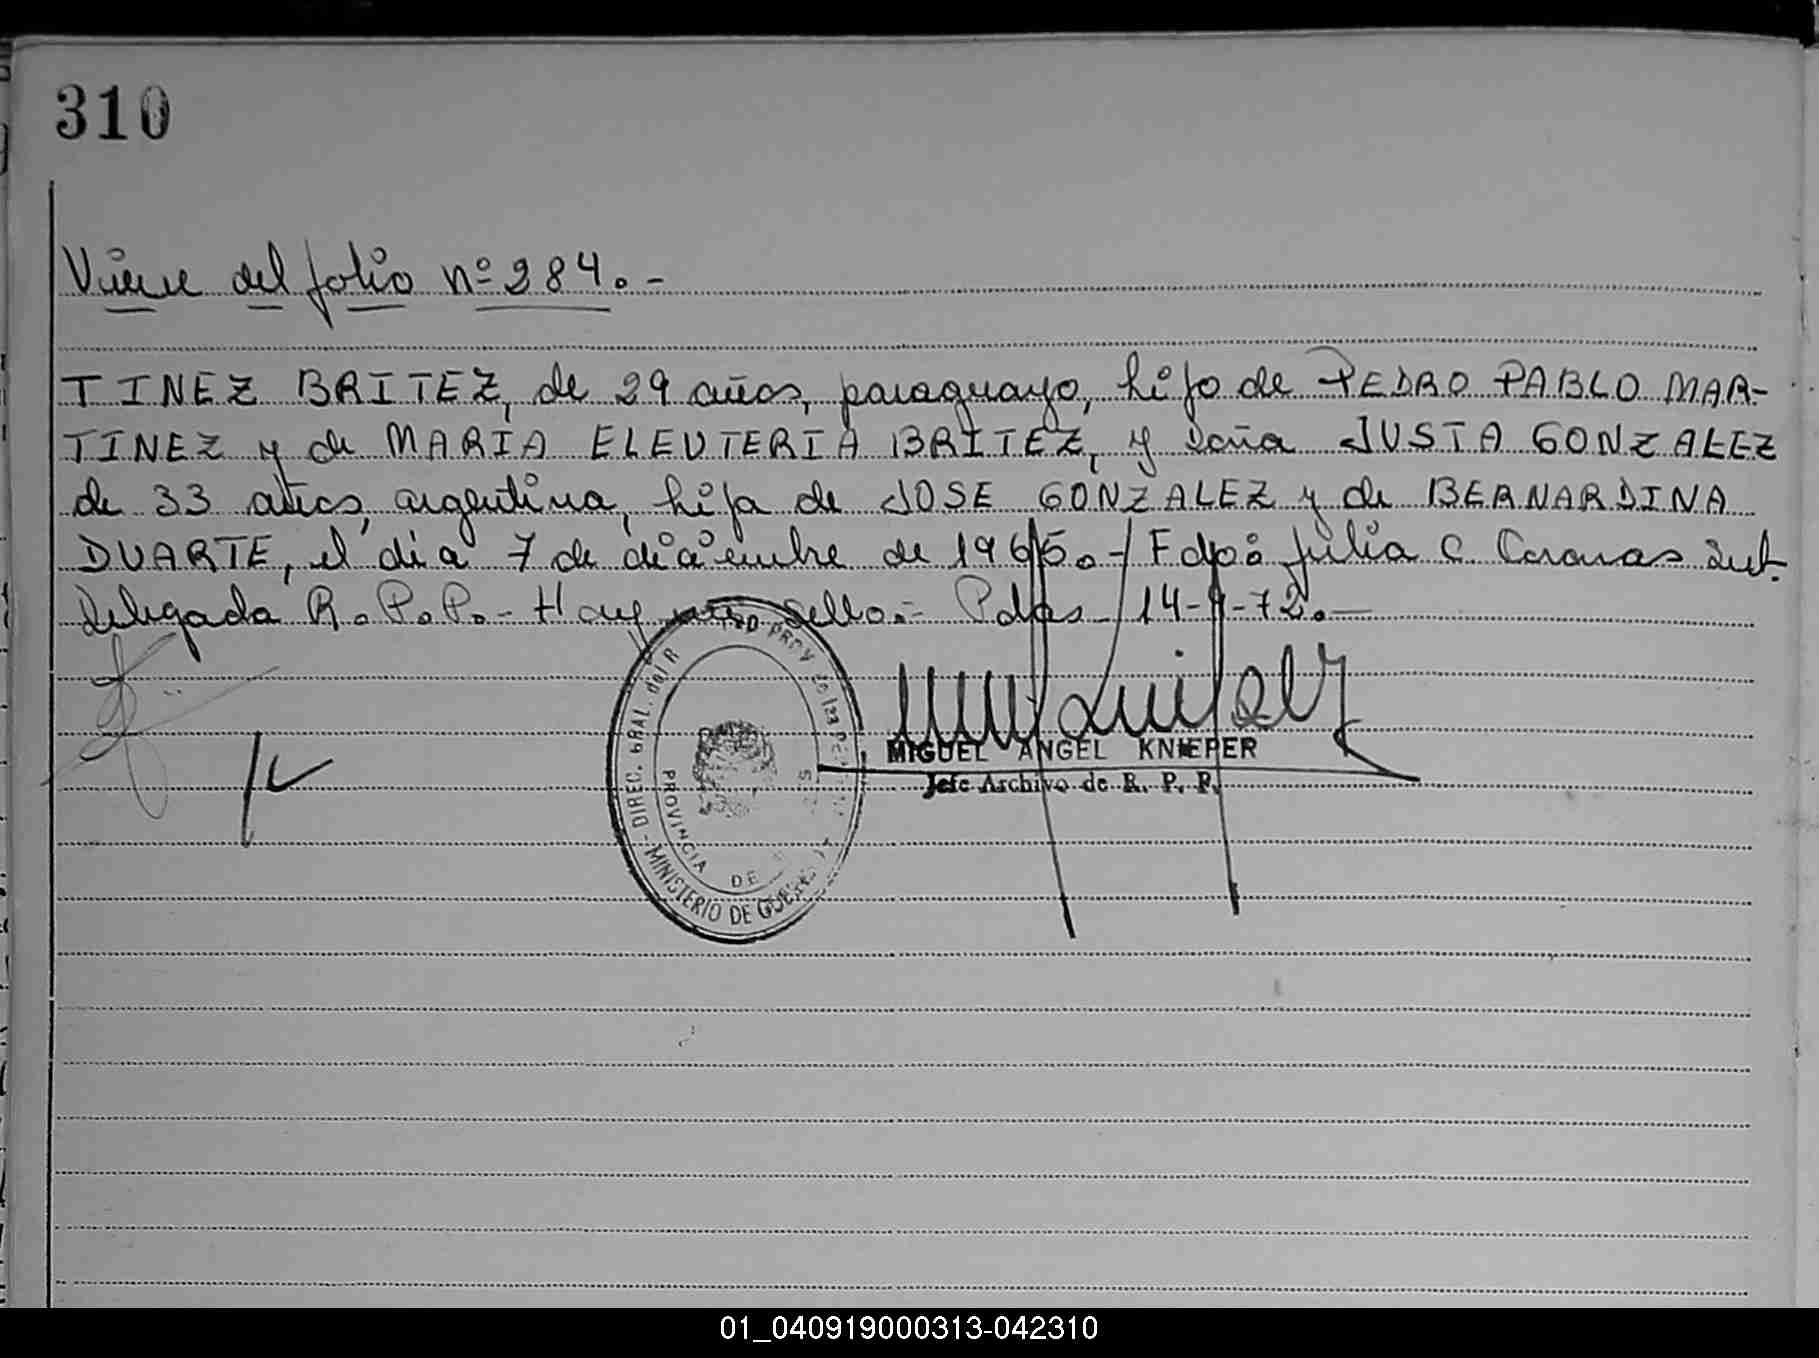 310
Viene del folio nº 284.-
TINEZ BRITEZ, de 29 años, paraguayo, hijo de PEDRO PABLO MAR-
TINEZ y de MARIA ELEUTERIA BRITEZ, y doña JUSTA GONZALEZ
de 33 años, argentina, hija de JOSE GONZALEZ y de BERNARDINA
DUARTE, el dia 7 de diciembre de 1965.- Fdo: Julia C. Sub.
delegada R.P.P.- Hay un sello.- Pdas 14-72.-
DIREC. GRAL. del R PROV
PROVINCIA DE
MINISTERIO DE
MIGUEL ANGEL KNIEPER
Jefe Archivo de R. P. P.
01_040919000313-042310